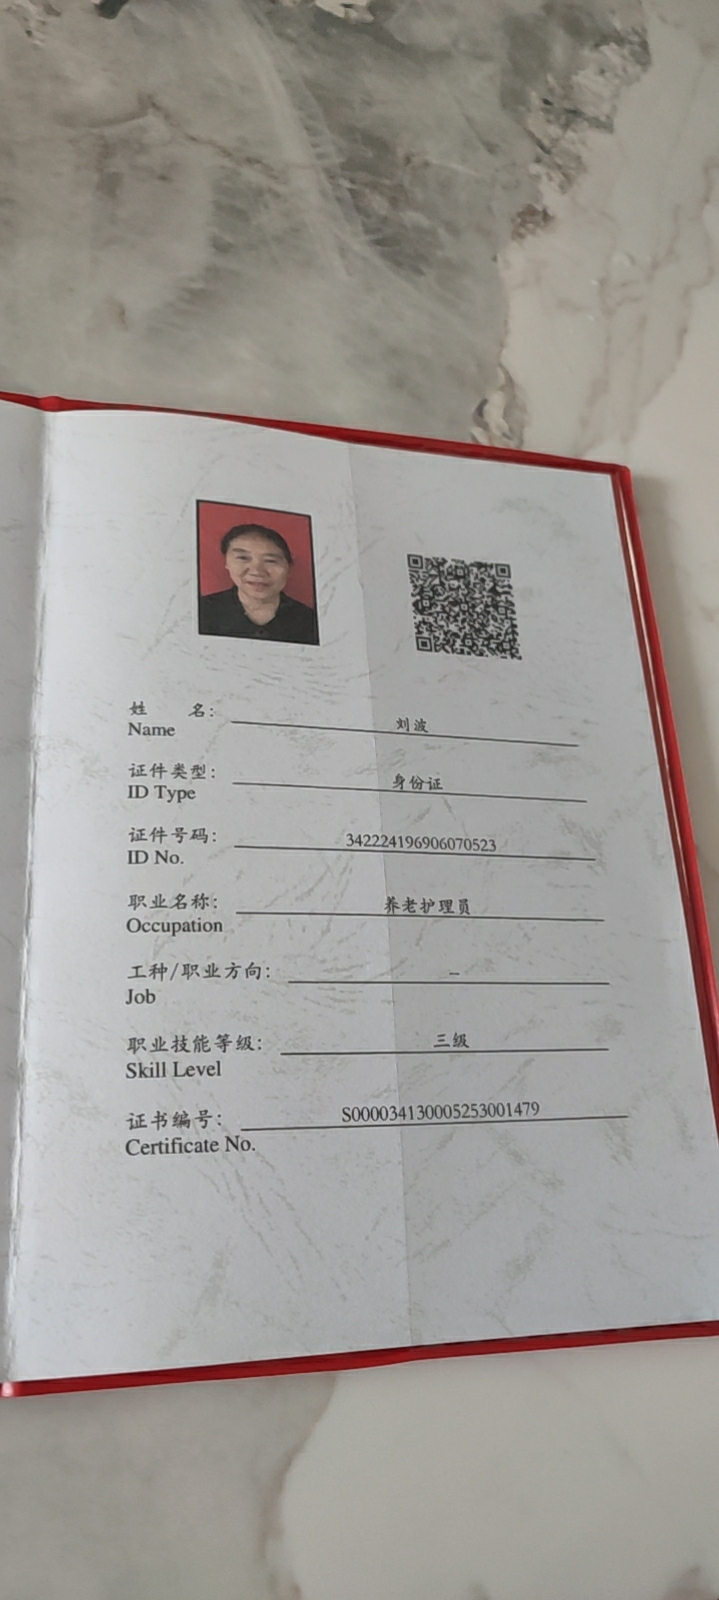 姓 名： 刘波
Name
证件类型： 身份证
ID Type
证件号码： 342224196906070523
ID No.
职业名称： 养老护理员
Occupation
工种/职业方向： –
Job
职业技能等级： 三级
Skill Level
证书编号： S000034130005253001479
Certificate No.